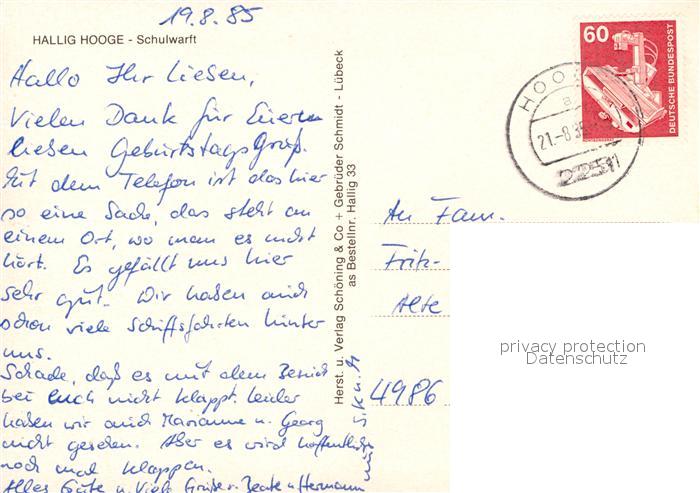 19.8.85
HALLIG HOOGE - Schulwarft
Hallo Ihr Lieben,
Vielen Dank für Eueren
lieben Geburtstagsgruß.
Mit dem Telefon ist das hier
so eine Sache, das steht an
einem Ort, wo man es nicht
hört. Es gefällt uns hier
sehr gut. Wir haben auch
schon viele Schiffsfahrten hinter
uns.
Schade, daß es mit dem Besuch
bei Euch nicht klappt. Leider
haben wir auch Marianne u. Georg
nicht gesehen. Aber es wird hoffentlich
noch mal klappen.
Alles Gute u. viele Grüße v. Beate u. Hermann
Herst. u. Verlag Schöning & Co + Gebrüder Schmidt - Lübeck
as Bestellnr. Hallig 33
60
DEUTSCHE BUNDESPOST
HOO
a
21.-8.85
2251
An Fam.
Fritz-
Alte
4986
privacy protection
Datenschutz